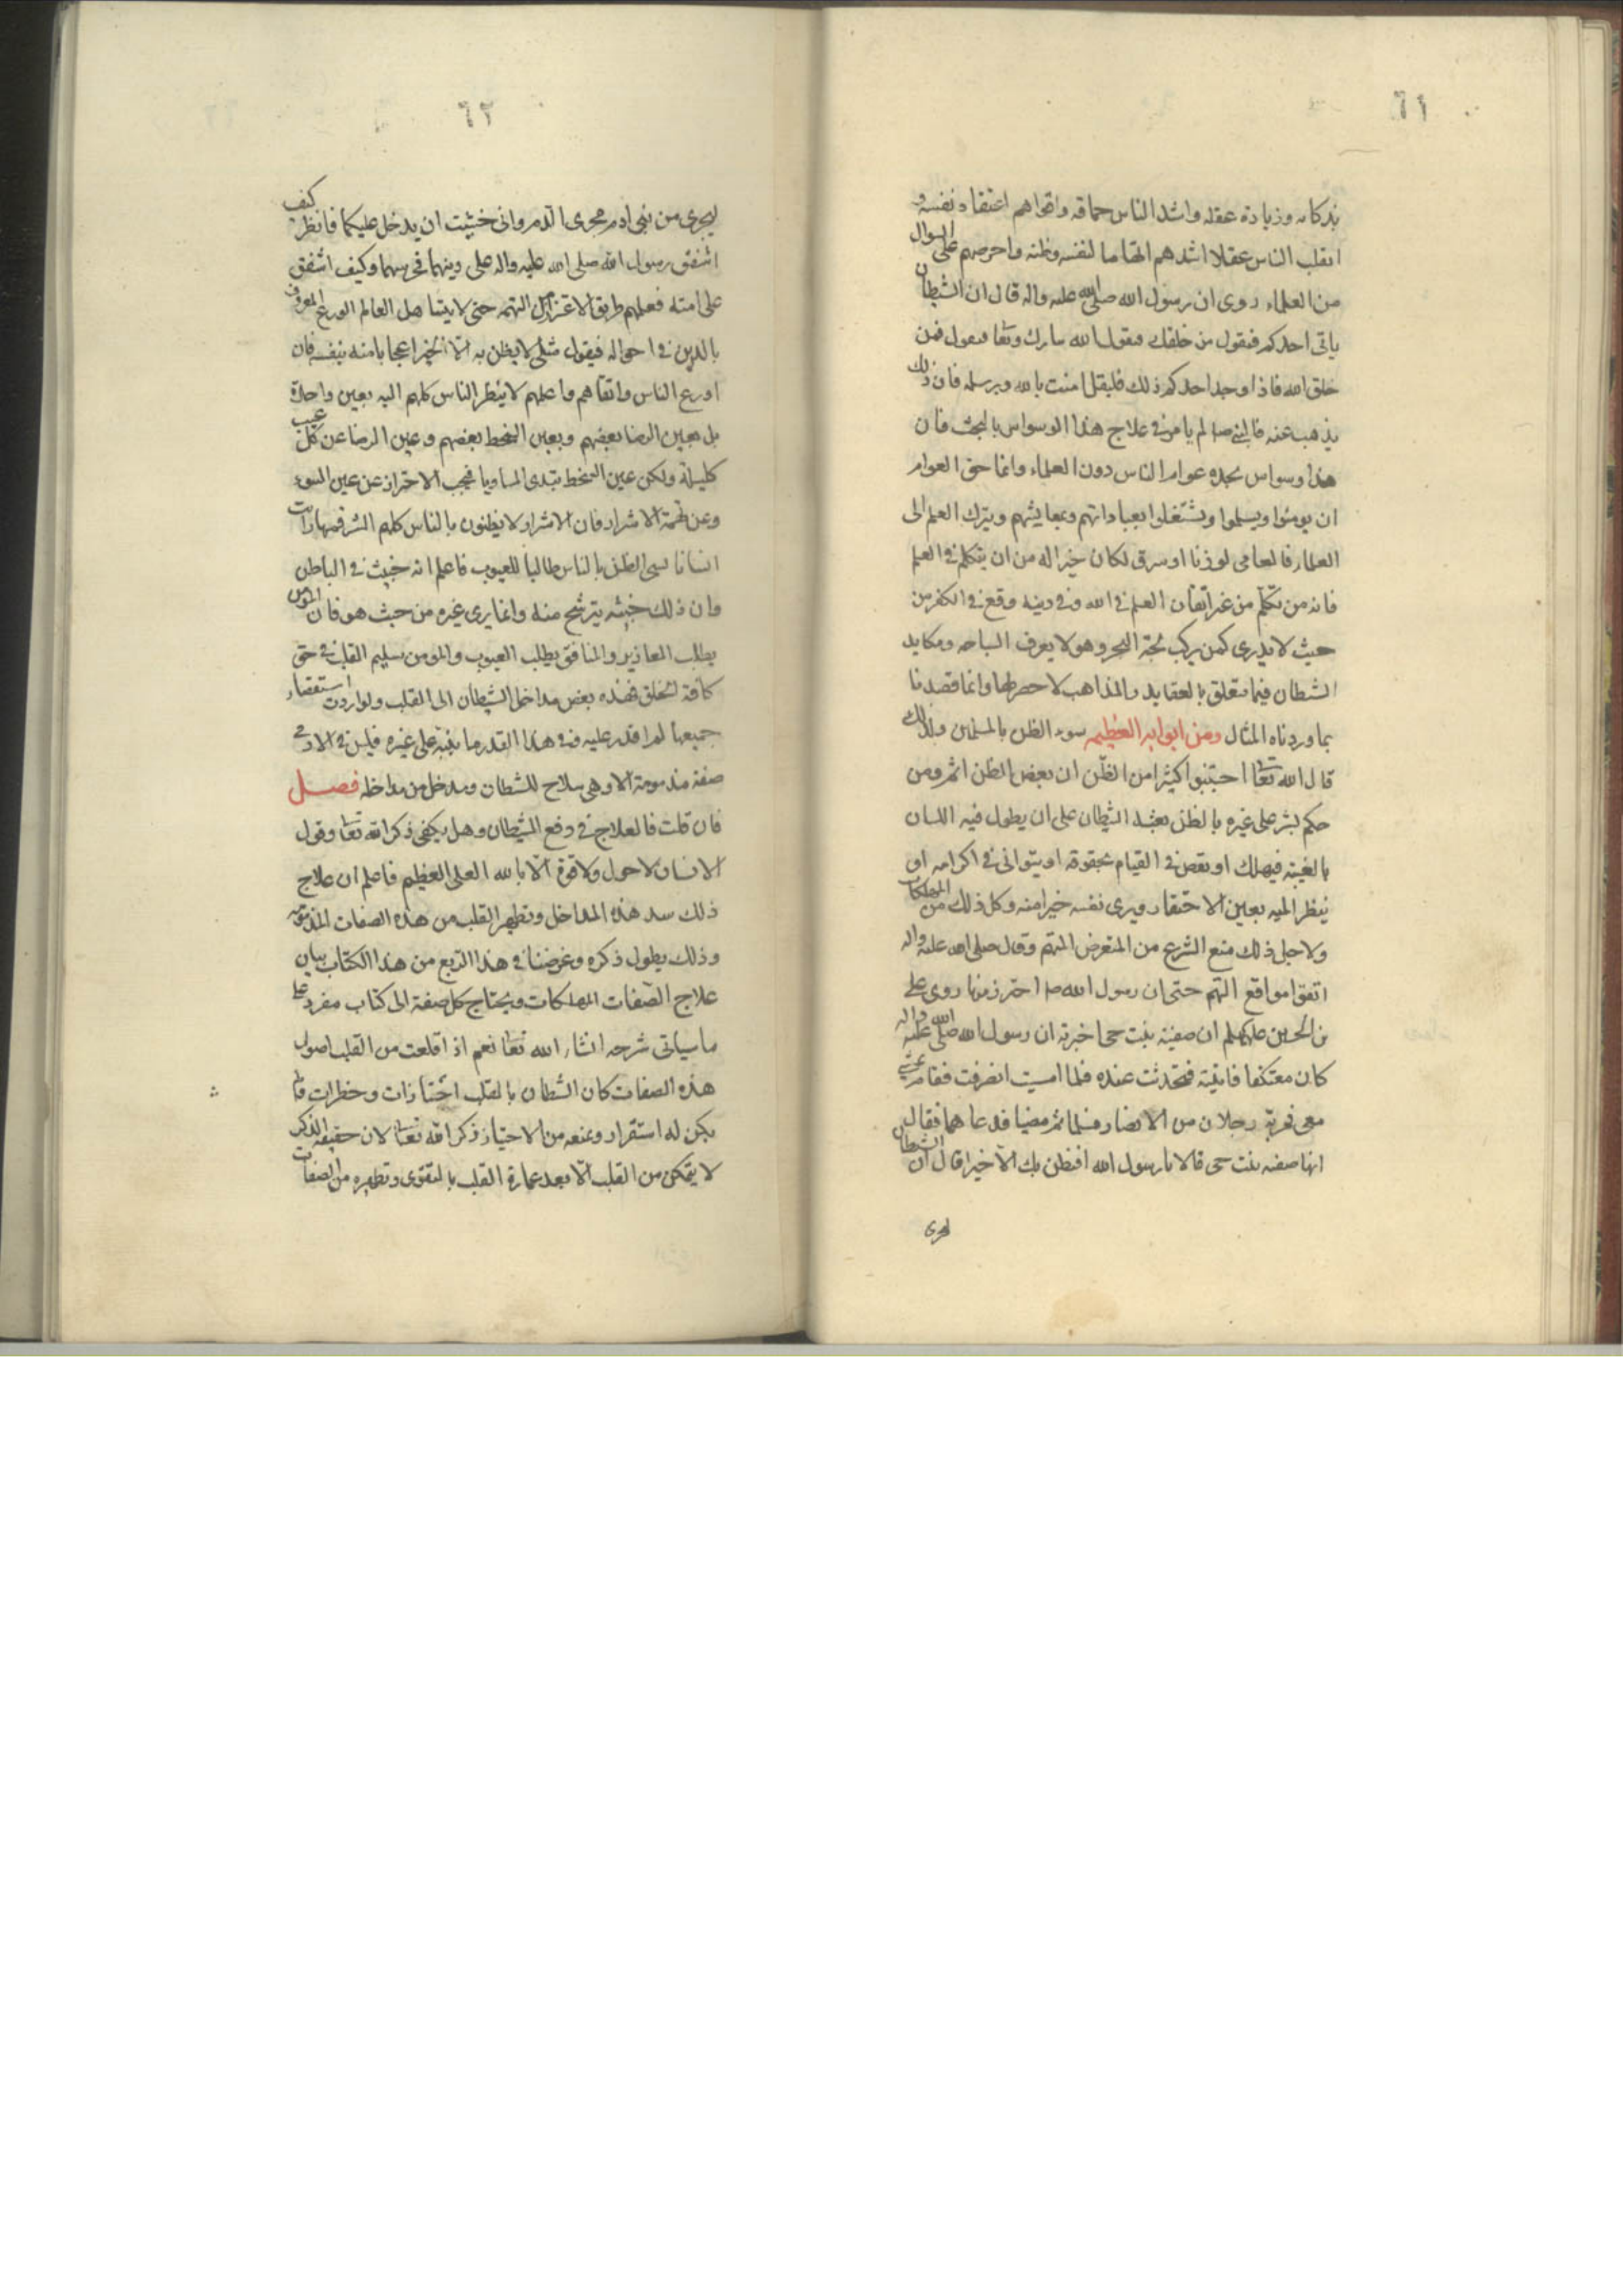 ٦١
بذكائه وزيادة عقله واشد الناس حماقة واقواهم اعتقاد نفسه و
اثقلب الناس عقلا اشدهم اتهاما لنفسه وظنه واحرصهم على السوال
من العلماء روى ان رسول الله صلى الله عليه واله قال ان الشيطان
ياتى احدكم فيقول من خلقك فيقول الله تبارك وتعا فيقول فمن
خلق الله فاذا وجد احدكم ذلك فليقل امنت بالله وبرسله فان ذلك
يذهب عنه فالنبى صلم لم يامر فى علاج هذا الوسواس بالبحث فان
هذا وسواس يجده عوام الناس دون العلماء وانما حق العوام
ان يومنوا ويسلموا ويشتغلوا بعباداتهم وبمعايشهم ويترك العلم الى
العلماء فالعامى لو زنا او سرق لكان خيرا له من ان يتكلم فى العلم
فانه من تكلم من غير اتقان العلم فى الله وفى دينه وقع فى الكفر من
حيث لا يدرى كمن يركب لجة البحر وهو لا يعرف السباحه ومكايد
الشطان فيما يتعلق بالعقايد والمذاهب لا حصر لها وانما قصدنا
بما وردناه المثال ومن ابوابه العظيمه سوء الظن بالمسلمين ولذلك
قال الله تعا اجتنبوا كثيرا من الظن ان بعض الظن اثم ومن
حكم بشر على غيره بالظن بعثه الشيطان على ان يطول فيه اللسان
بالغيبة فيهلك او يقصر فى القيام بحقوقه او يتوانى فى اكرامه او
ينظر اليه بعين الاحتقار ويرى نفسه خيرا منه وكل ذلك من المهلكات
ولاجل ذلك منع الشرع من التعرض للتهم وقال صلى الله عليه واله
اتقوا مواقع التهم حتى ان رسول الله صلم احترز منها روى على
بن الحسين عليهم السلم ان صفية بنت حى اخبرته ان رسول الله صلى الله عليه واله
كان معتكفا فاتيته فتحدثت عنده فلما امسيت انصرفت فقام يمشى
معى فمر به رجلان من الانصار فسلما ثم مضيا فدعاهما فقال
انها صفيه بنت حى قالا يا رسول الله افنظن بك الا خيرا قال ان الشيطان
ليجرى
٦٢
ليجرى من بنى ادم مجرى الدم وانى خشيت ان يدخل عليكما فانظر كيف
اشفق رسول الله صلى الله عليه واله على دينهما فحرسهما وكيف اشفق
على امته فعلمهم طريق الاحتراز من التهمه حتى لا يتساهل العالم الورع المعروف
بالدين فى احواله فيقول مثلى لا يظن به الا الخير اعجابا منه بنفسه فان
اورع الناس واتقاهم واعلمهم لا ينظر الناس كلهم اليه بعين واحدة
بل بعين الرضا بعضهم وبعين السخط بعضهم وعين الرضا عن كل عيب
كليلة ولكن عين السخط تبدى المساويا فيجب الاحتراز عن عين السوء
وعن تهمة الاشرار فان الاشرار لا يظنون بالناس كلهم الا الشر فمهما رايت
انسانا يسى الظن بالناس طالبا للعيوب فاعلم انه خبيث فى الباطن
وان ذلك خبثه يترشح منه وانما يرى غيره من حيث هو فان المومن
يطلب المعاذير والمنافق يطلب العيوب والمومن سليم القلب فى حق
كافة الخلق فهذه بعض مداخل الشيطان الى القلب ولو اردت استقصاء
جميعها لم اقدر عليه وفى هذا القدر ما ينبه على غيره فليس فى الادمى
صفة مذمومة الا وهى سلاح للشطان ومدخل من مداخله فصل
فان قلت فالعلاج فى دفع الشيطان وهل يكفى ذكر الله تعا وقول
الانسان لا حول ولا قوة الا بالله العلى العظيم فاعلم ان علاج
ذلك سد هذه المداخل وتطهير القلب من هذه الصفات المذمومه
وذلك يطول ذكره وغرضنا فى هذا الربع من هذا الكتاب بيان
علاج الصفات المهلكات ويحتاج كل صفة الى كتاب مفرد على
ما سياتى شرحه انشاء الله تعا نعم اذا قلعت من القلب اصول
هذه الصفات كان الشطان بالقلب اجتيازات وخطرات ولم
يكن له استقرار ويمنعه من الاجتياز ذكر الله تعا لان حقيقة الذكر
لا يتمكن من القلب الا بعد عمارة القلب بالتقوى وتطهيره من الصفات